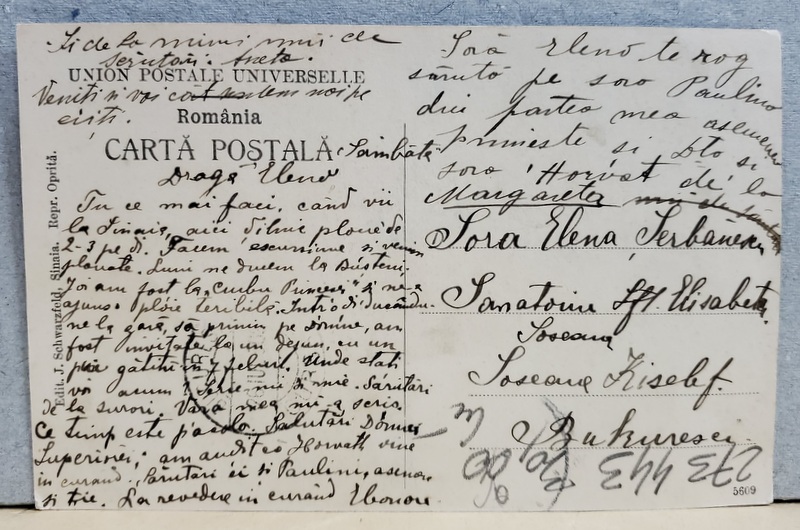 Și de la mine mii de
sărutări. Aneta.
UNION POSTALE UNIVERSELLE
Veniți și voi
România
CARTĂ POȘTALĂ
Sâmbătă
Dragă Eleno
Tu ce mai faci, când vii
la Sinaia, aici zilnic plouă de
2-3 pe zi. Facem escursiune și venim
plouate. Luni ne ducem la Bușteni.
Joi am fost la "Cuibu Princesei" și ne-a
ajuns o ploie teribilă. Într'o zi ducându-
ne la gară, să primim pe Domne, am
fost invitate la un dejun, cu un
gătită în 7 feluri. Unde stați
voi acum? Scrie-mi și mie. Sărutări
de la surori. Vara mea mi-a scris.
Ce timp este pacolo. Salutări Domnei
Superiorei; am auzit că Horvath vine
în curând. Sărutări ei și Paulinei, asemenea
și ție. La revedere în curând Eleonora
Edit. J. Schwarzfeld, Sinaia. Repr. Oprită.
Soră Eleno te rog
sărută pe sora Paulina
din partea mea asemenea
primește și Dta și
sora Horvat de la
Margareta
Sora Elena Șerbănescu
Sanatoriu Sft Elisabeta
Șoseaua
Șoseaua Kiselef.
Bukurescu
273 443
5609